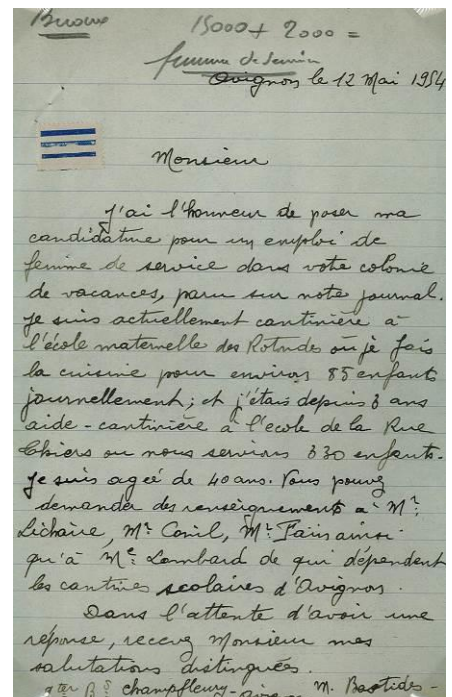 15000 + 2000 =
femme de service
Avignon le 12 Mai 1954
Monsieur
J'ai l'honneur de poser ma
candidature pour un emploi de
femme de service dans votre colonie
de vacances, paru sur notre journal.
Je suis actuellement cantinière à
l'école maternelle des Rotondes où je fais
la cuisine pour environ 85 enfants
journellement; et j'étais depuis 3 ans
aide-cantinière à l'ecole de la Rue
Thiers ou nous servions 330 enfants.
Je suis ageé de 40 ans. Vous pouvez
demander des renseignements à Mr.
Mr. Conil, Mr. ainsi
qu'à Me Lombard de qui dépendent
les cantines scolaires d'Avignon.
Dans l'attente d'avoir une
réponse, recevez Monsieur mes
salutations distinguées.
champfleury - M. Bastides -